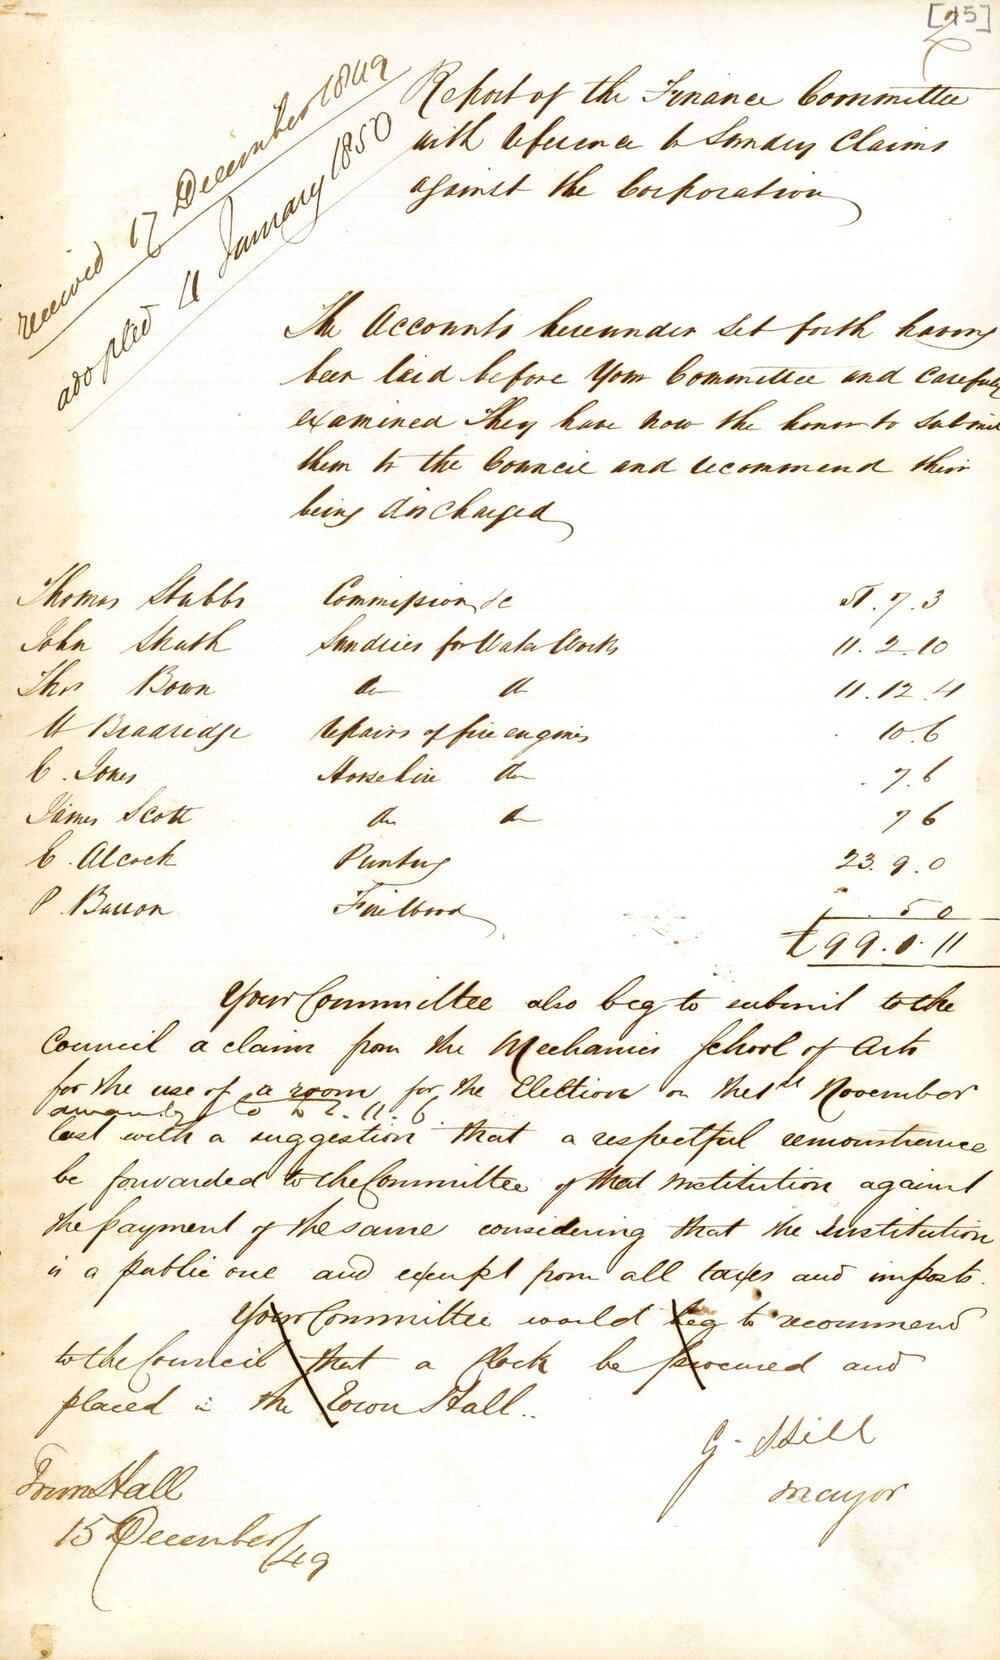 [15]
received 17 December 1849
adopted 4 January 1850
Report of the Finance Committee
with reference to Sundry Claims
against the Corporation
The Accounts hereunder set forth having
been laid before Your Committee and carefully
examined They have now the honor to submit
them to the Council and recommend their
being discharged
Thomas Stubbs Commission &c 51. 7. 3
John Struth Sundries for Water Works 11. 2. 10
Thos Bown do do 11. 12. 4
W Bradridge repairs of fire engines 10. 6
C. Jones Horsehire do 7. 6
James Scott do do 7 6
E. Alcock Printing 23. 9. 0
P. Barron Firewood 5 0
£99. 0. 11
Your Committee also beg to submit to the
Council a claim from the Mechanics School of Arts
for the use of a room for the Election on the 1st November
amounting to £2. 11. 6
last with a suggestion that a respectful remonstrance
be forwarded to the Committee of that Institution against
the payment of the same considering that the Institution
is a public one and exempt from all taxes and imposts.
Your Committee would beg to recommend
to the Council that a Clock be procured and
placed in the Town Hall..
G. Hill
Mayor
Town Hall
15 December /49